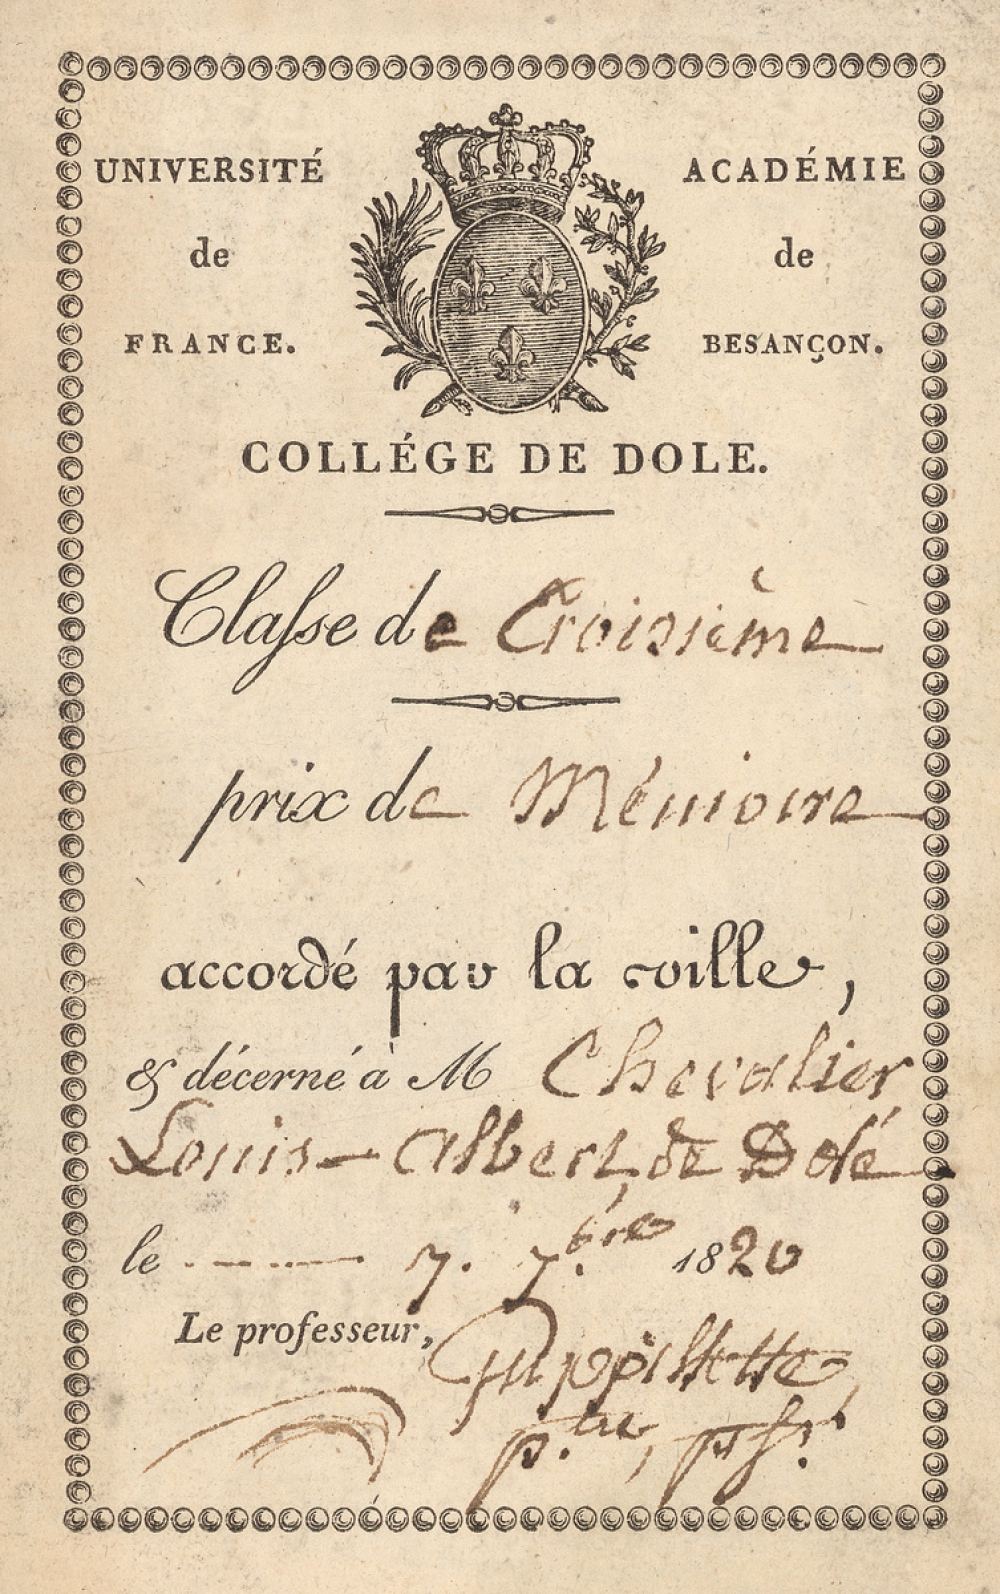 UNIVERSITÉ
de
FRANCE.
ACADÉMIE
de
BESANÇON.
COLLÉGE DE DOLE.
Classe de Troisième
prix de Mémoire
accordé par la ville,
& décerné à M Chevalier
Louis-Albert, de Dolé
le 7. 7.bre 1820
Le professeur,